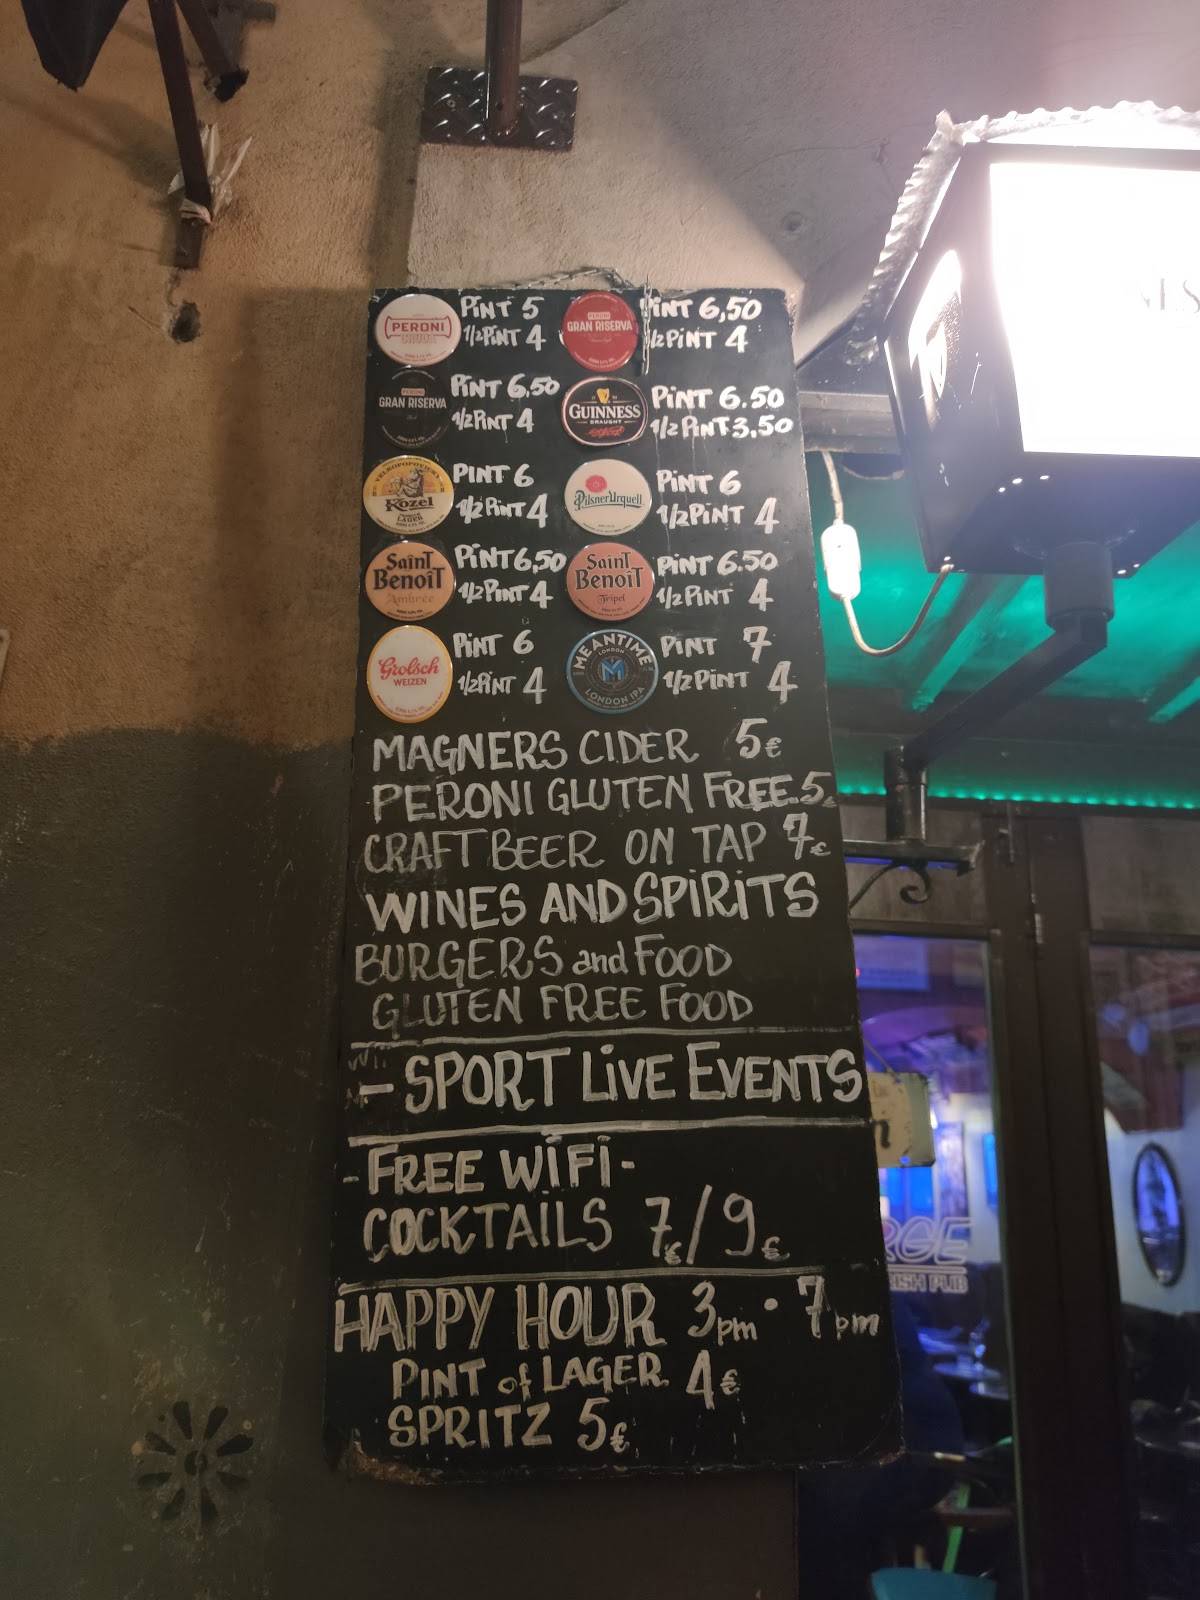 PERONI
PiNT 5
1/2 PiNT 4
PERONI
GRAN RISERVA
PiNT 6,50
1/2 PiNT 4
PERONI
GRAN RISERVA
PiNT 6,50
1/2 PiNT 4
GUINNESS
DRAUGHT
PiNT 6.50
1/2 PiNT 3,50
VELKOPOPOVICKÝ
Kozel
LAGER
PiNT 6
1/2 PiNT 4
Pilsner Urquell
PiNT 6
1/2 PiNT 4
SaînT
BenoîT
Ambrée
PiNT 6,50
1/2 PiNT 4
SainT
BenoîT
Tripel
PiNT 6.50
1/2 PiNT 4
Grolsch
WEIZEN
PiNT 6
1/2 PiNT 4
MEANTIME
LONDON
M
LONDON IPA
PiNT 7
1/2 PiNT 4
MAGNERS CIDER 5€
PERONI GLUTEN FREE 5€
CRAFT BEER ON TAP 7€
WINES AND SPiRiTS
BURGERS and FOOD
GLUTEN FREE FOOD
- SPORT LiVE EVENTS
- FREE WiFi -
COCKTAiLS 7€/9€
HAPPY HOUR 3pm • 7pm
PINT of LAGER 4€
SPRITZ 5€
RGE
RISH PUB